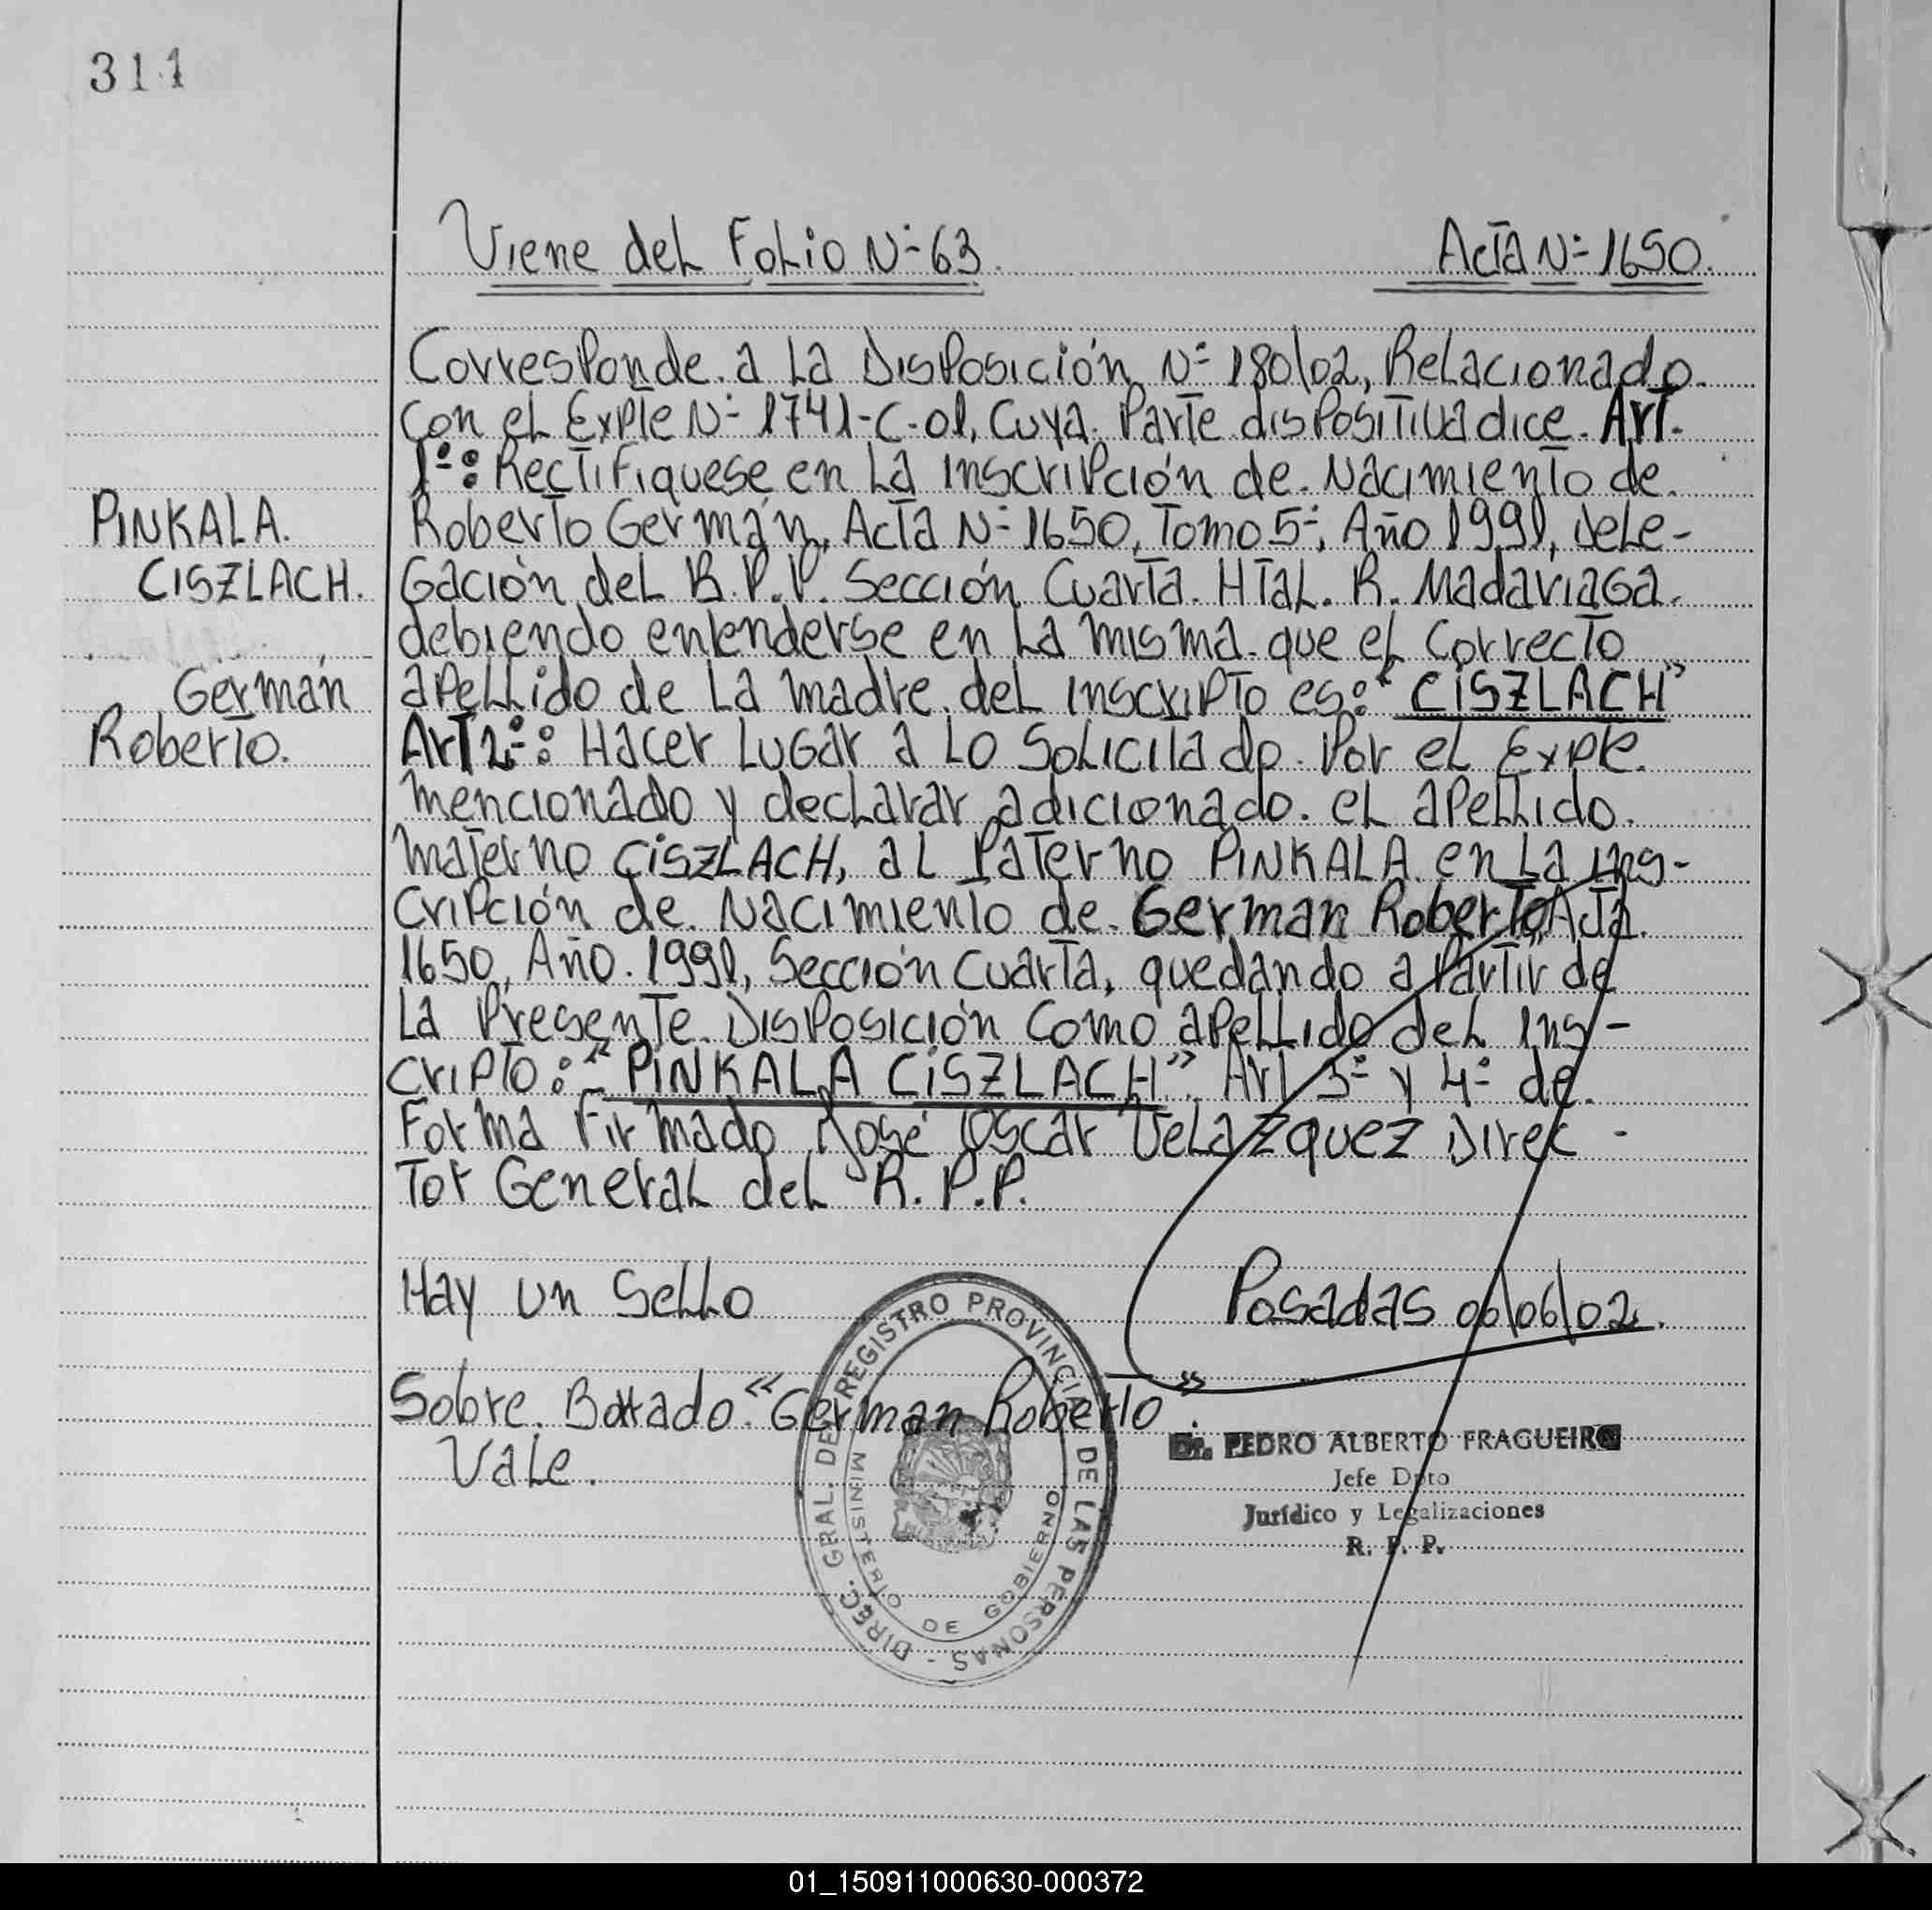 311
Viene del Folio Nº 63. Acta Nº 1650.
Corresponde a la Disposición Nº 180/02, Relacionado
con el Expte Nº 1741-C-01, Cuya Parte dispositiva dice. Art.
1º: Rectifiquese en la inscripción de Nacimiento de
PINKALA.
Roberto Germán, Acta Nº 1650, Tomo 5º, Año 1991, dele-
CISZLACH.
gación del R.P.P. Sección Cuarta. Htal. R. Madariaga.
debiendo entenderse en la misma que el correcto
Germán
apellido de la madre del inscripto es: "CISZLACH"
Roberto.
Art 2º: Hacer lugar a lo solicitado Por el Expte.
mencionado y declarar adicionado el apellido
materno CISZLACH, al Paterno PINKALA en la ins-
cripción de Nacimiento de German Roberto Acta
1650, Año 1991, Sección Cuarta, quedando a Partir de
la Presente Disposición como apellido del ins-
cripto: "PINKALA CISZLACH". Art 3º y 4º de
Forma Firmado José Oscar Velazquez Direc-
tor General del R.P.P.
Hay un Sello Posadas 06/06/02.
Sobre Borrado "German Roberto".
Vale.
DIREC. GRAL. DE REGISTRO PROVINCIAL DE LAS PERSONAS -
MINISTERIO DE GOBIERNO
Dr. PEDRO ALBERTO FRAGUEIRO
Jefe Dpto
Jurídico y Legalizaciones
R. P. P.
01_150911000630-000372